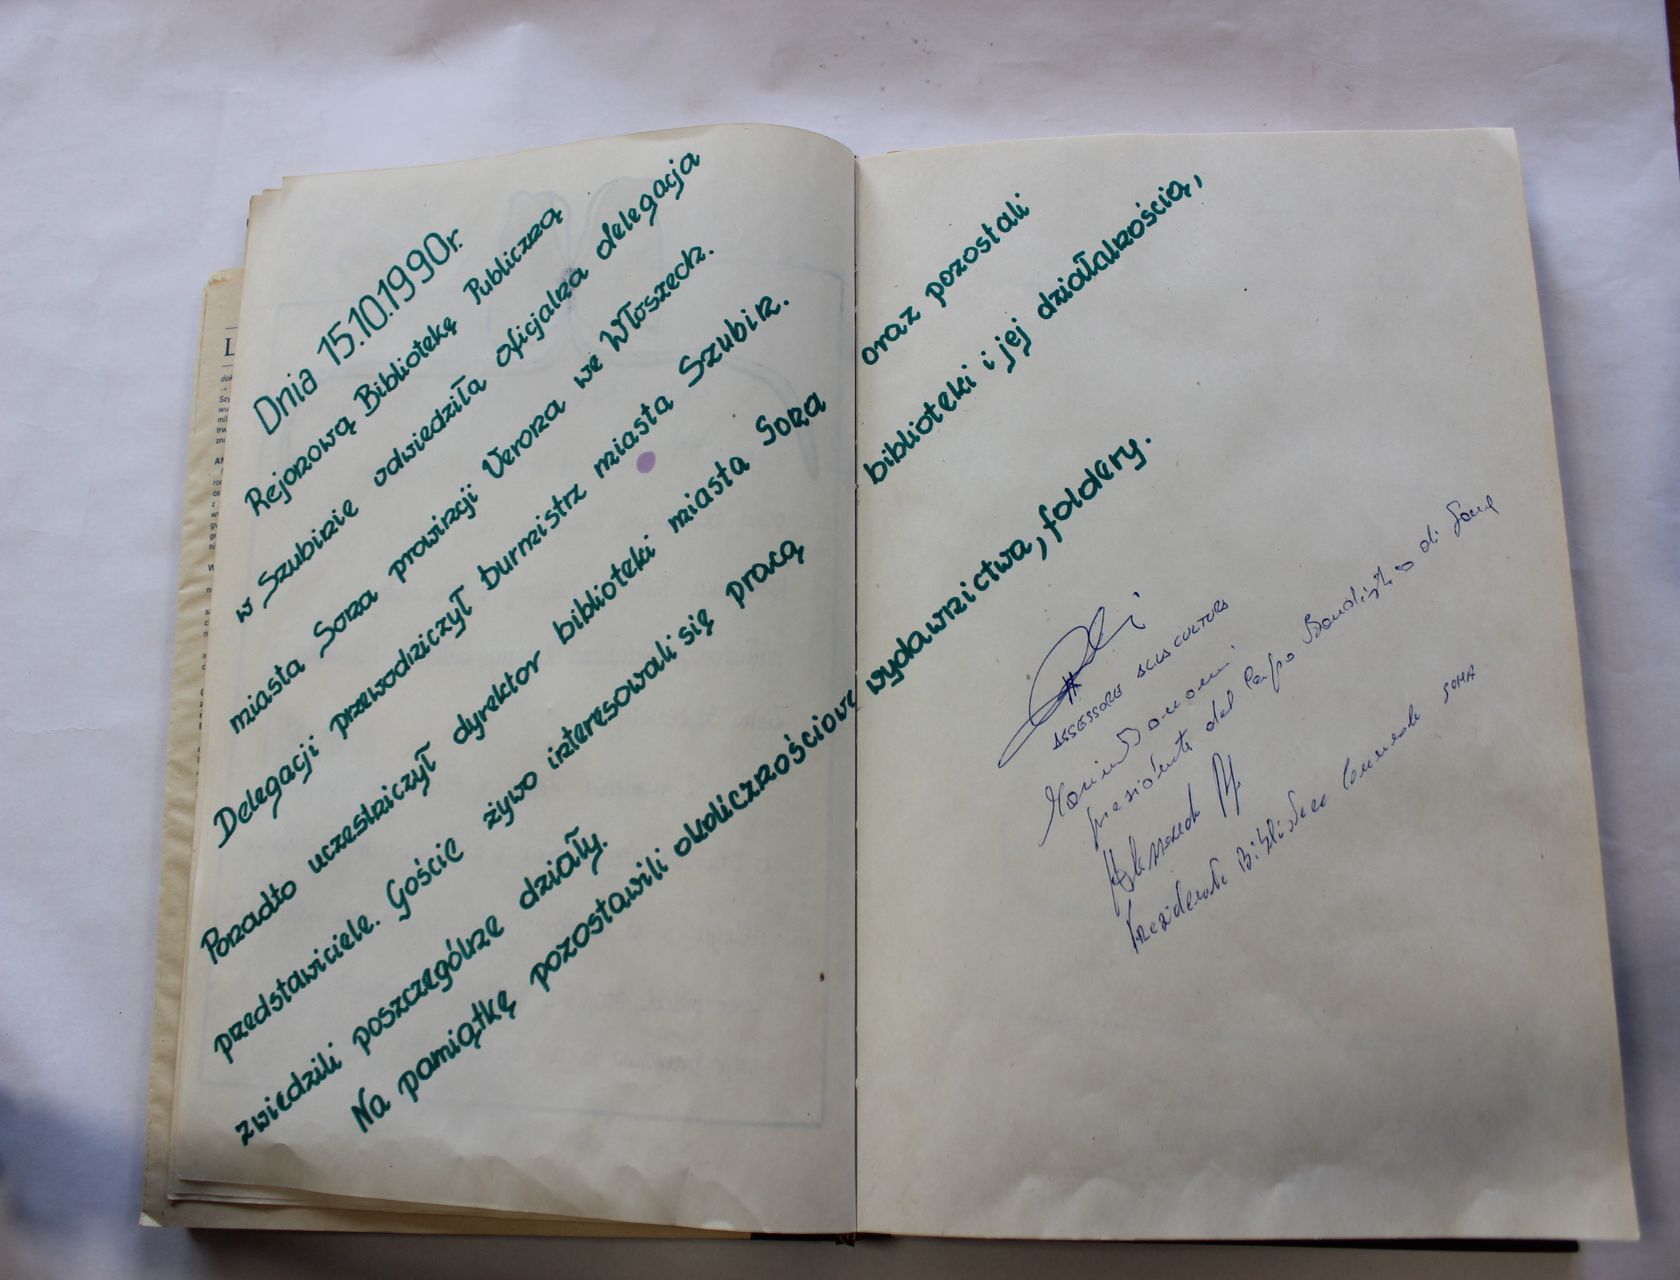 Dnia 15.10.1990r.
Rejonową Bibliotekę Publiczną
w Szubinie odwiedziła oficjalna delegacja
miasta Sona prowincji Verona we Włoszech.
Delegacji przewodniczył burmistrz miasta Szubin.
Ponadto uczestniczył dyrektor biblioteki miasta Sona oraz pozostali
przedstawiciele. Goście żywo interesowali się pracą biblioteki i jej działalnością,
zwiedzili poszczególne działy.
Na pamiątkę pozostawili okolicznościowe wydawnictwa, foldery.
ASSESSORE ALLA CULTURA
presidente del Corpo Bandistico di Sona
Presidente Biblioteca Comunale SONA